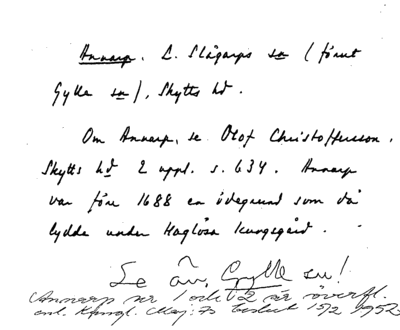 Annarp. L. Slågarps sn (förut
Gylle sn), Skytts hd.
Om Annarp, se Olof Christoffersson.
Skytts hd 2 uppl. s. 634. Annarp
var före 1688 en ödegrund som då
lydde under Haglösa kungsgård.
Se äv. Gylle sn!
Annarp nr 1 och 2 är överfl.
enl. Kungl. Maj:ts beslut 15/2 1952